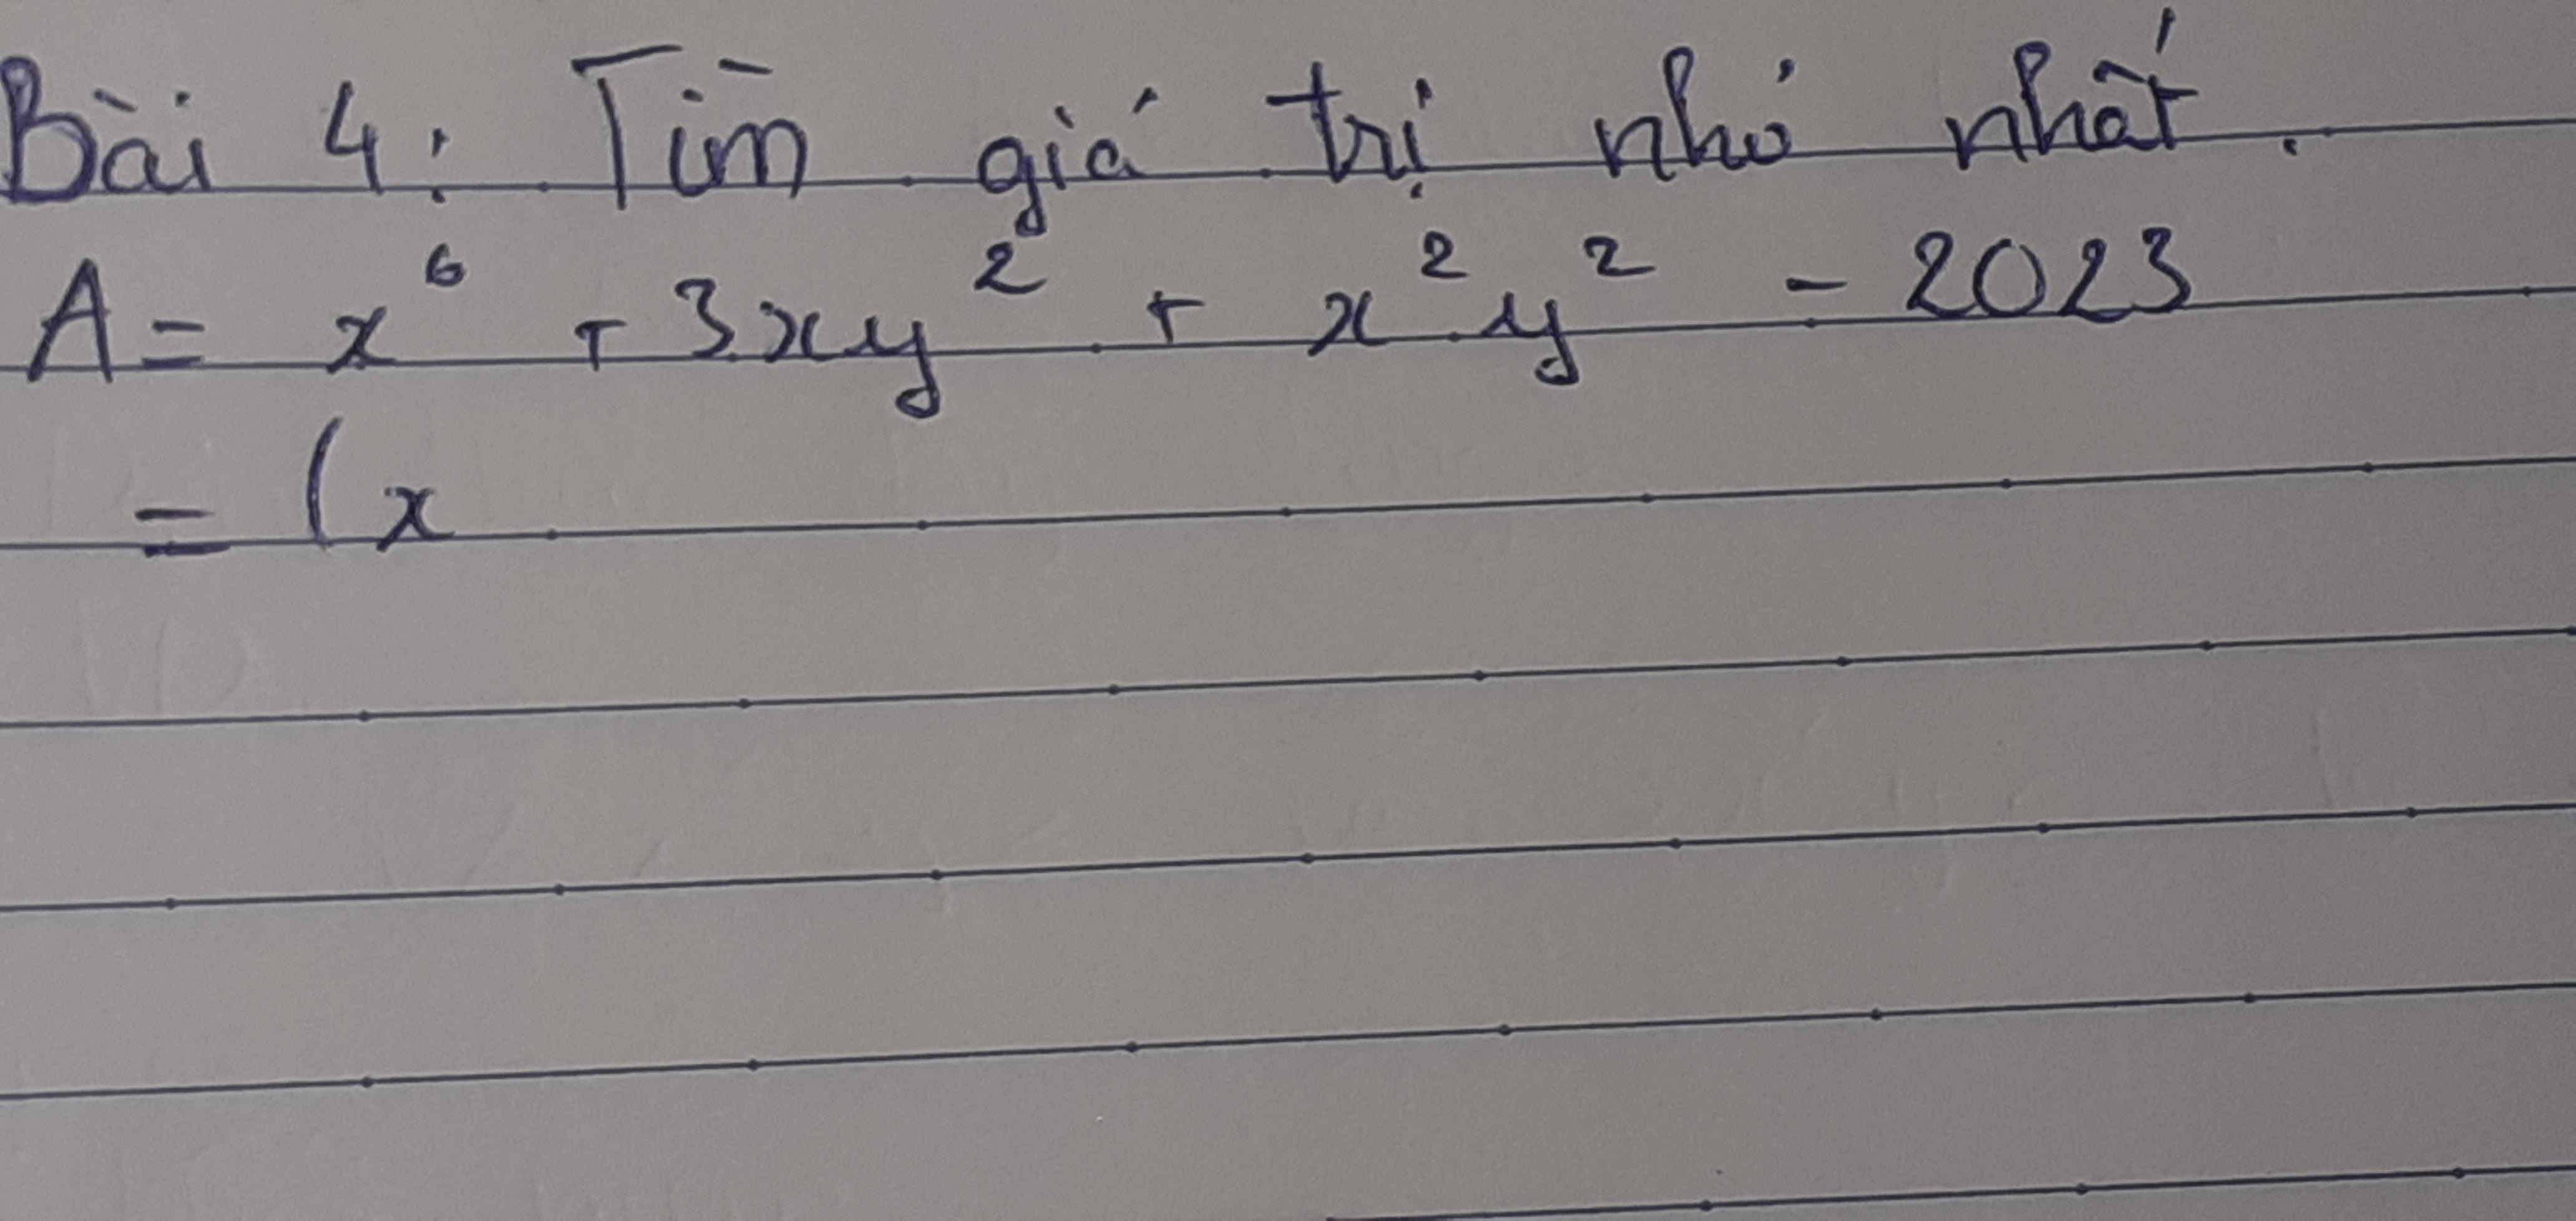 Bài 4: Tìm giá trị nhỏ nhất.
A = x⁶ + 3xy² + x²y² - 2023
= (x